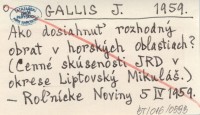 GALLIS J. 1959.
Ako dosiahnuť rozhodný
obrat v horských oblastiach?
(Cenné skúsenosti JRD v
okrese Liptovský Mikuláš.)
— Roľnícke Noviny 5 IV 1959.